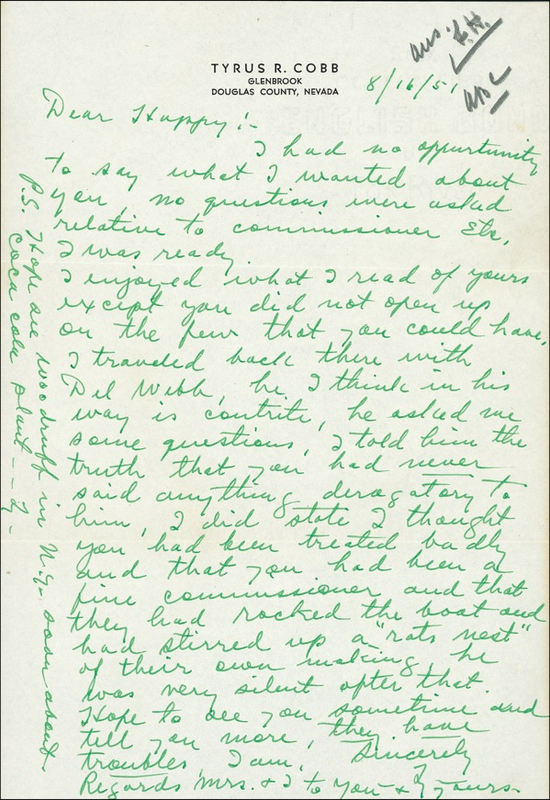 TYRUS R. COBB
GLENBROOK
DOUGLAS COUNTY, NEVADA
ans.
8/16/51
Dear Happy!-
I had no oppurtunity
to say what I wanted about
you, no questions were asked
relative to commissioner Etc,
I was ready.
I enjoyed what I read of yours
except you did not open up
on the few that you could have,
I traveled back there with
Del Webb, he I think in his
way is contrite, he asked me
some questions, I told him the
truth that you had never
said anything derogatory to
him, I did state I thought
you had been treated badly
and that you had been a
fine commissioner and that
they had rocked the boat and
had stirred up a "rats nest"
of their own making, he
was very silent after that.
Hope to see you sometime and
tell you more, they have
troubles, I am, Sincerely
Regards Mrs. & I to you & yours-
P.S. Hope see woodruff in N.Y. soon about
Coca cola plant - Ty -